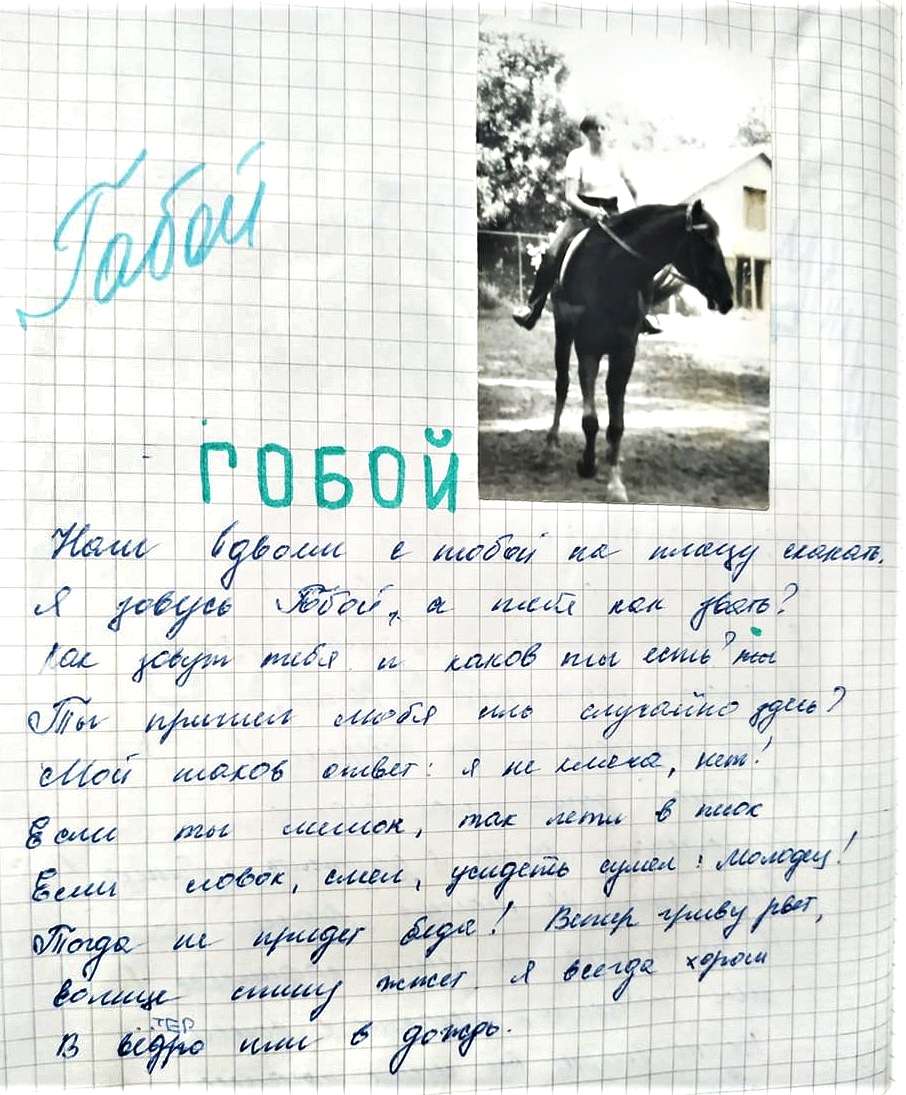 Гобой
ГОБОЙ
Нам вдвоем с тобой по плацу скакать.
Я зовусь Гобой, а тебя как звать?
Как зовут тебя и каков ты есть? ты
Ты пришел любя иль случайно здесь?
Мой таков ответ: я не кляча, нет!
Если ты мешок, так лети в песок
Если ловок, смел, усидеть сумел: Молодец!
Тогда не придет беда! Ветер гриву рвет,
солнце спину жжет. Я всегда хорош
В вёдро ТЕР или в дождь.